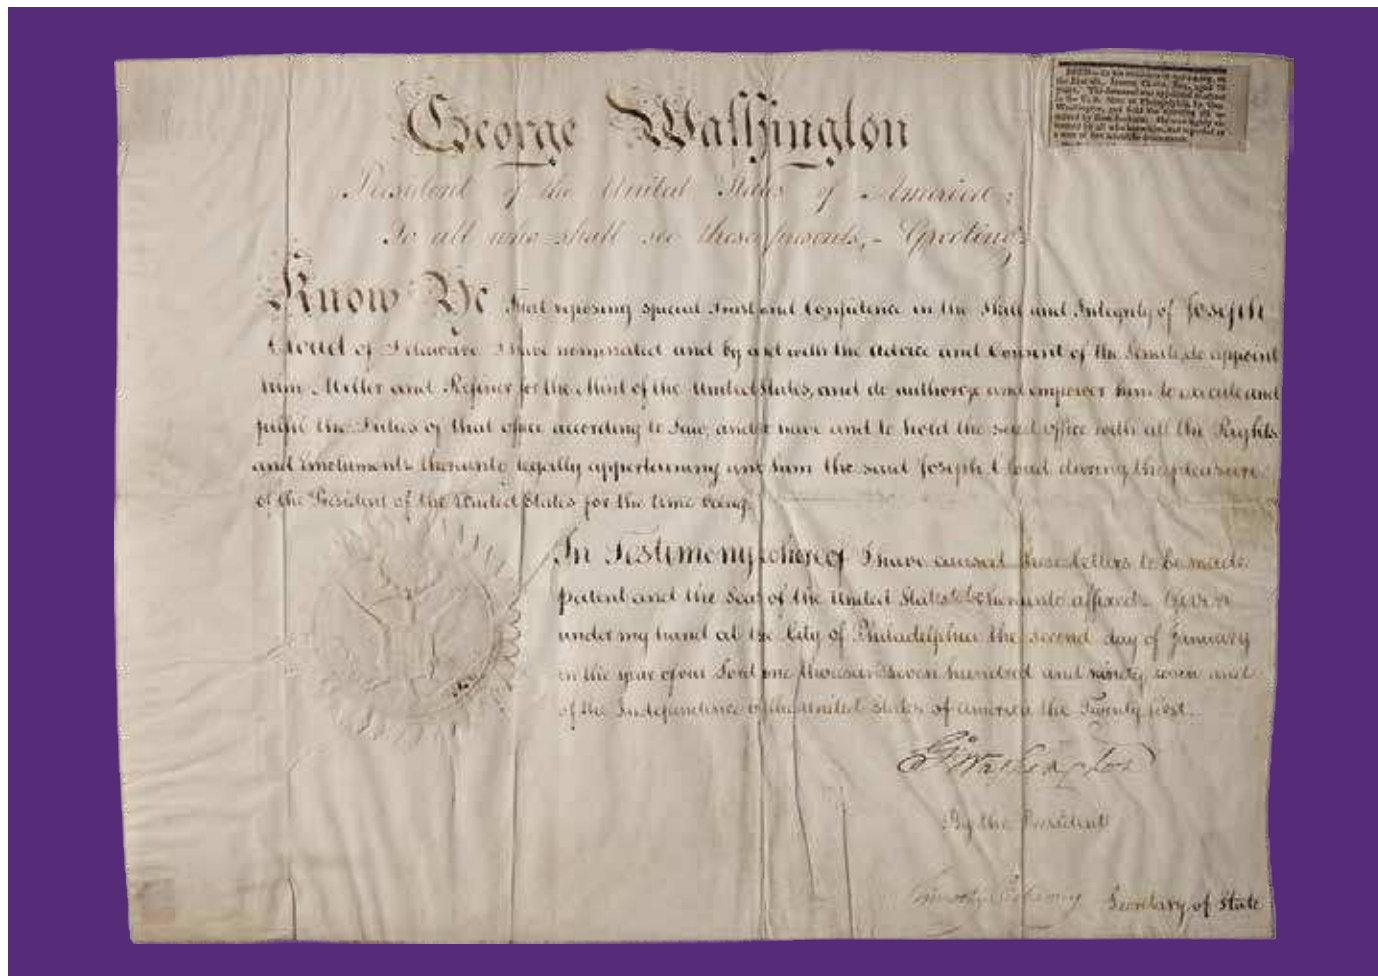 George Washington
President of the United States of America;
To all who shall see these presents, Greeting:
Know Ye That reposing special Trust and Confidence in the Skill and Integrity of Joseph
Cloud of Delaware I have nominated and by and with the Advice and Consent of the Senate, do appoint
him Melter and Refiner for the Mint of the United States, and do authorize and empower him to execute and
fulfil the Duties of that office according to Law; and to have and to hold the said Office with all the Rights
and Emoluments thereunto legally appertaining unto him the said Joseph Cloud during the pleasure
of the President of the United States for the time being.
In Testimony whereof I have caused these Letters to be made
patent and the Seal of the United States to be hereunto affixed. Given
under my hand at the City of Philadelphia the second day of January
in the year of our Lord one thousand seven hundred and ninety seven and
of the Independence of the United States of America the Twenty first.
G. Washington
By the President
Timothy Pickering Secretary of State
DIED—
Washington, and